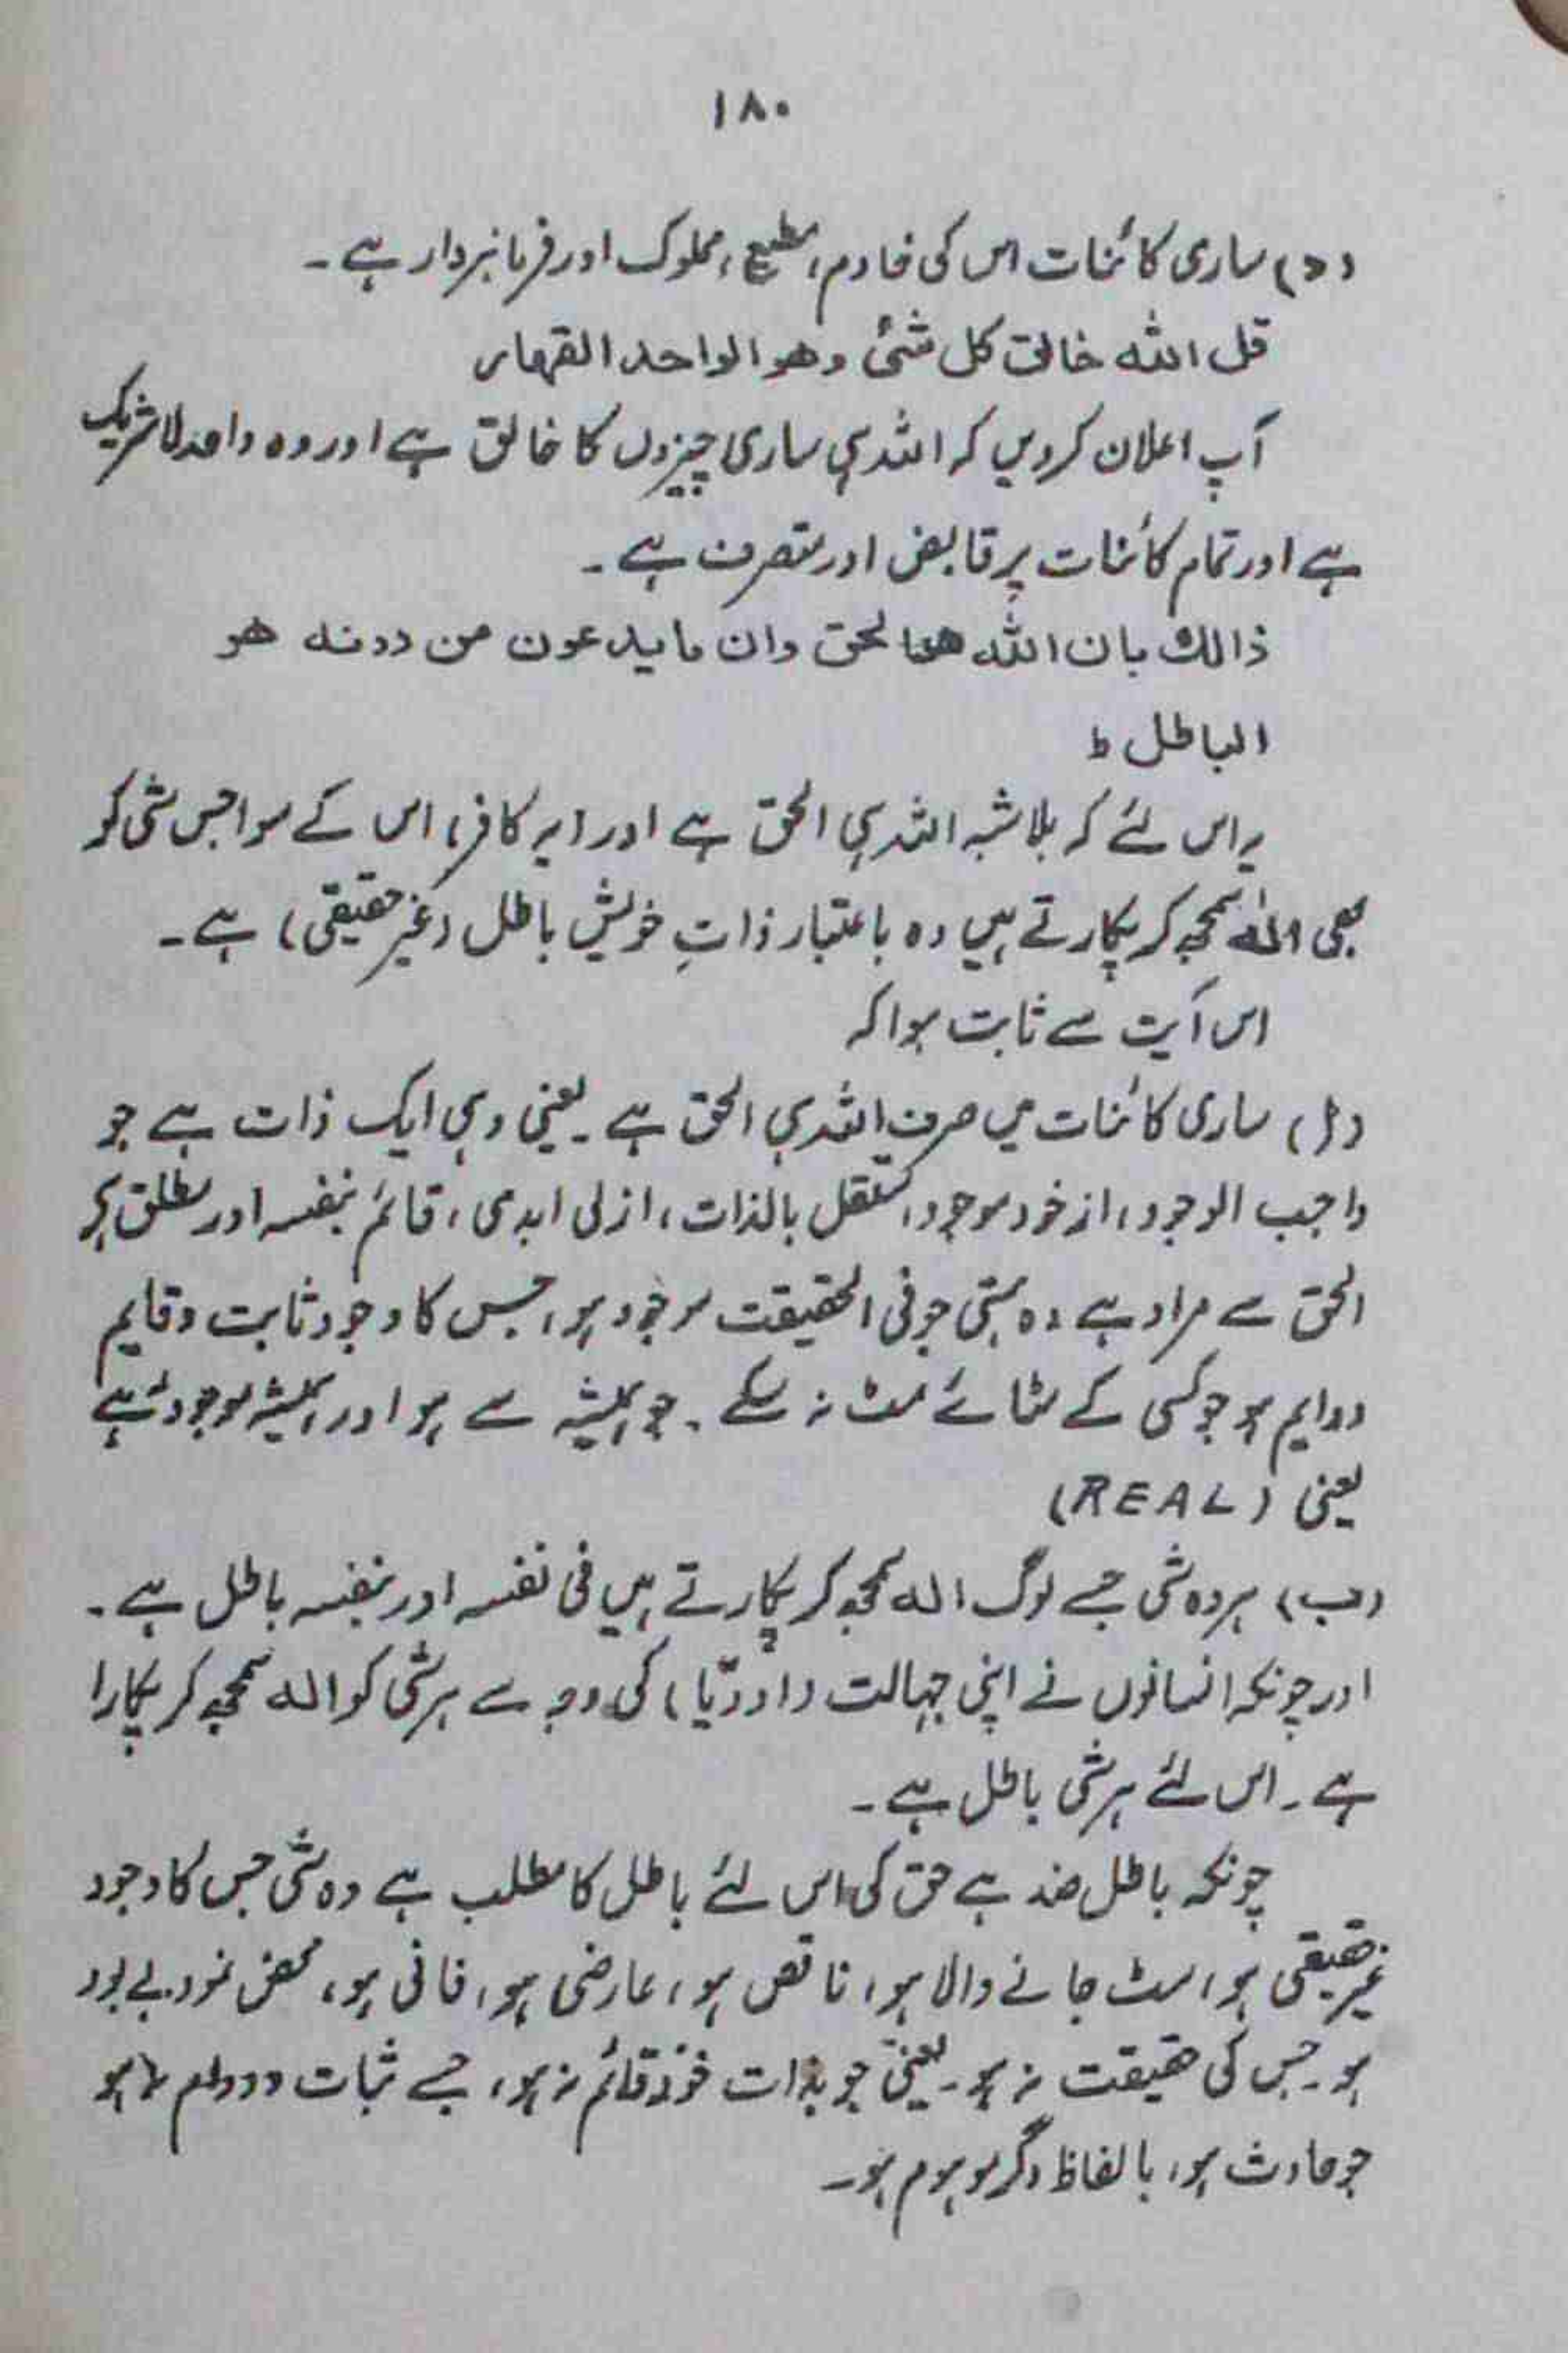 ۱۸۰
(د) ساری کائنات اس کی خادم، مطیع، مملوک اور فرمانبردار ہے۔
قل اللہ خالق کل شئ وھو الواحد القھار
آپ اعلان کردیں کہ اللہ ہی ساری چیزوں کا خالق ہے اور وہ واحد لاشریک
ہے اور تمام کائنات پر قابض اور متصرف ہے۔
ذالك بان اللہ ھوالحق وان ما یدعون من دونہ ھو
الباطل ط
یہ اس لئے کہ بلاشبہ اللہ ہی الحق ہے اور (یہ کافر) اس کے سوا جس شی کو
بھی الٰہ سمجھ کر پکارتے ہیں وہ باعتبار ذاتِ خویش باطل (غیر حقیقی) ہے۔
اس آیت سے ثابت ہوا کہ
(ا) ساری کائنات میں صرف اللہ ہی الحق ہے۔ یعنی وہی ایک ذات ہے جو
واجب الوجود، از خود موجود، مستقل بالذات، ازلی ابدی، قائم بنفسہ اور مطلق ہو
الحق سے مراد ہے وہ ہستی جو فی الحقیقت موجود ہو، جس کا وجود ثابت و قایم
ودایم ہو جو کسی کے مٹائے مٹ نہ سکے۔ جو ہمیشہ سے ہو اور ہمیشہ موجود رہے
یعنی (REAL)
(ب) ہر وہ شی جسے لوگ الٰہ سمجھ کر پکارتے ہیں فی نفسہ اور بنفسہ باطل ہے۔
اور چونکہ انسانوں نے اپنی جہالت (اودّیا) کی وجہ سے ہر شی کو الہ سمجھ کر پکارا
ہے۔ اس لئے ہر شی باطل ہے۔
چونکہ باطل ضد ہے حق کی اس لئے باطل کا مطلب ہے وہ شی جس کا وجود
غیر حقیقی ہو، مٹ جانے والا ہو، ناقص ہو، عارضی ہو، فانی ہو، محض نمود بے بود
ہو۔ جس کی حقیقت نہ ہو۔ یعنی جو بذات خود قائم نہ ہو، جسے ثبات و دوام نہ ہو
جو حادث ہو، بالفاظ دگر موہوم ہو۔